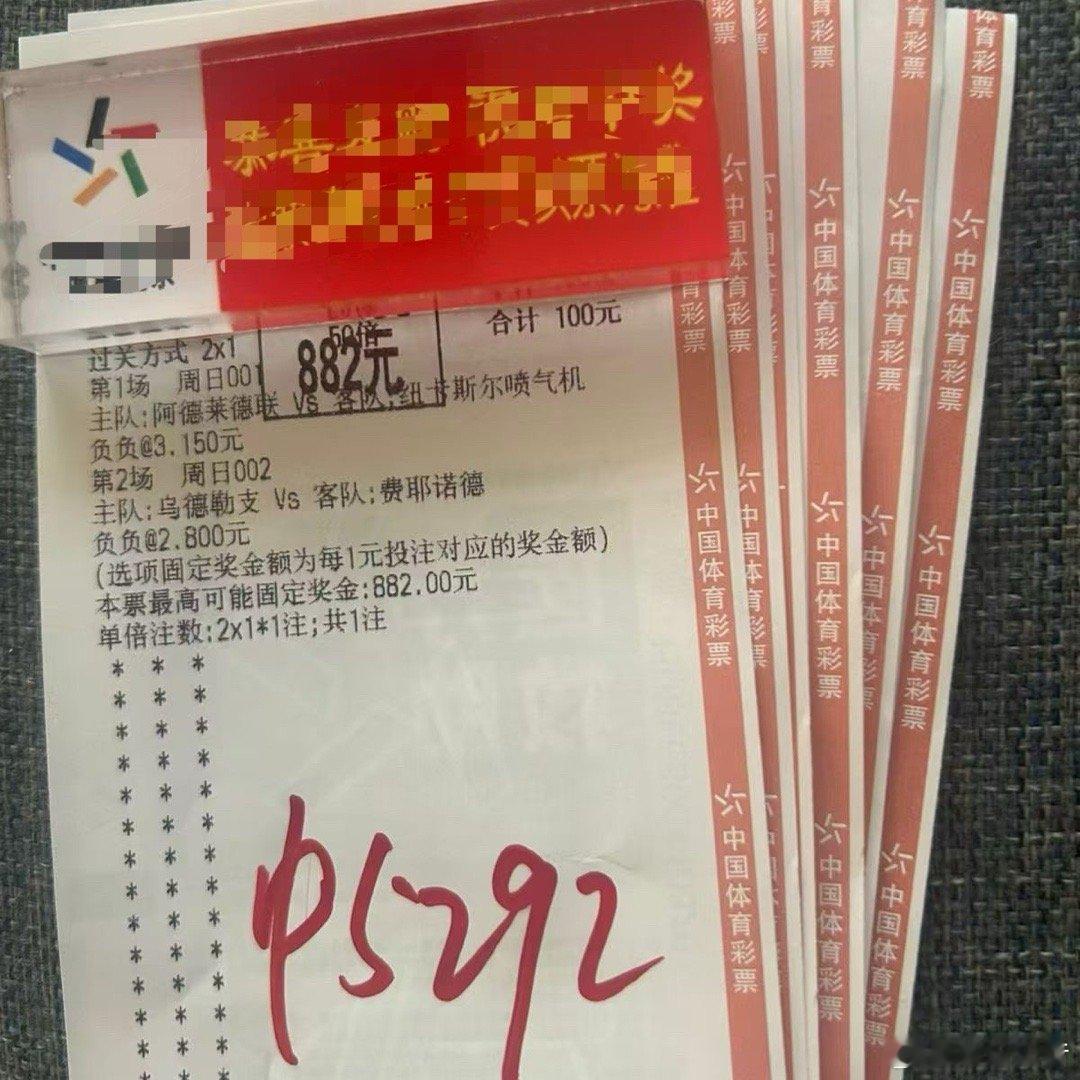 50倍
合计 100元
882元
过关方式 2x1
第1场 周日001
主队:阿德莱德联 Vs 客队:纽卡斯尔喷气机
负负@3.150元
第2场 周日002
主队:乌德勒支 Vs 客队:费耶诺德
负负@2.800元
(选项固定奖金额为每1元投注对应的奖金额)
本票最高可能固定奖金:882.00元
单倍注数:2x1*1注;共1注
中5292
中国体育彩票
中国体育彩票
中国体育彩票
中国体育彩票
中国体育彩票
中国体育彩票
中国体育彩票
中国体育彩票
中国体育彩票
中国体育彩票
中国体育彩票